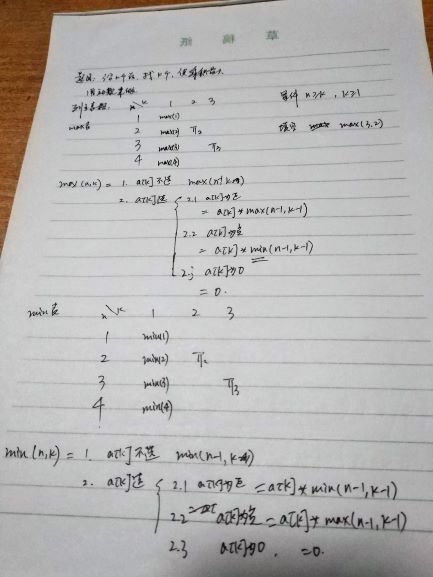 草稿纸
题目: 给n个数, 找k个, 使乘积最大
用动态规划
列表来想. n\k 1 2 3 条件 n≥k, k≥1
max表 1 max(1) 填写 max(3,2)
2 max(2) π2
3 max(3) π3
4 max(4)
max(n,k) = 1. a[k]不选 max(n-1,k)
2. a[k]选 2.1 a[k]为正
= a[k]*max(n-1,k-1)
2.2 a[k]为负
= a[k]*min(n-1,k-1)
2.3 a[k]为0
= 0.
min表 n\k 1 2 3
1 min(1)
2 min(2) π2
3 min(3) π3
4 min(4)
min(n,k) = 1. a[k]不选 min(n-1,k)
2. a[k]选 2.1 a[k]为正 = a[k]*min(n-1,k-1)
2.2 a[k]为负 = a[k]*max(n-1,k-1)
2.3 a[k]为0, =0.